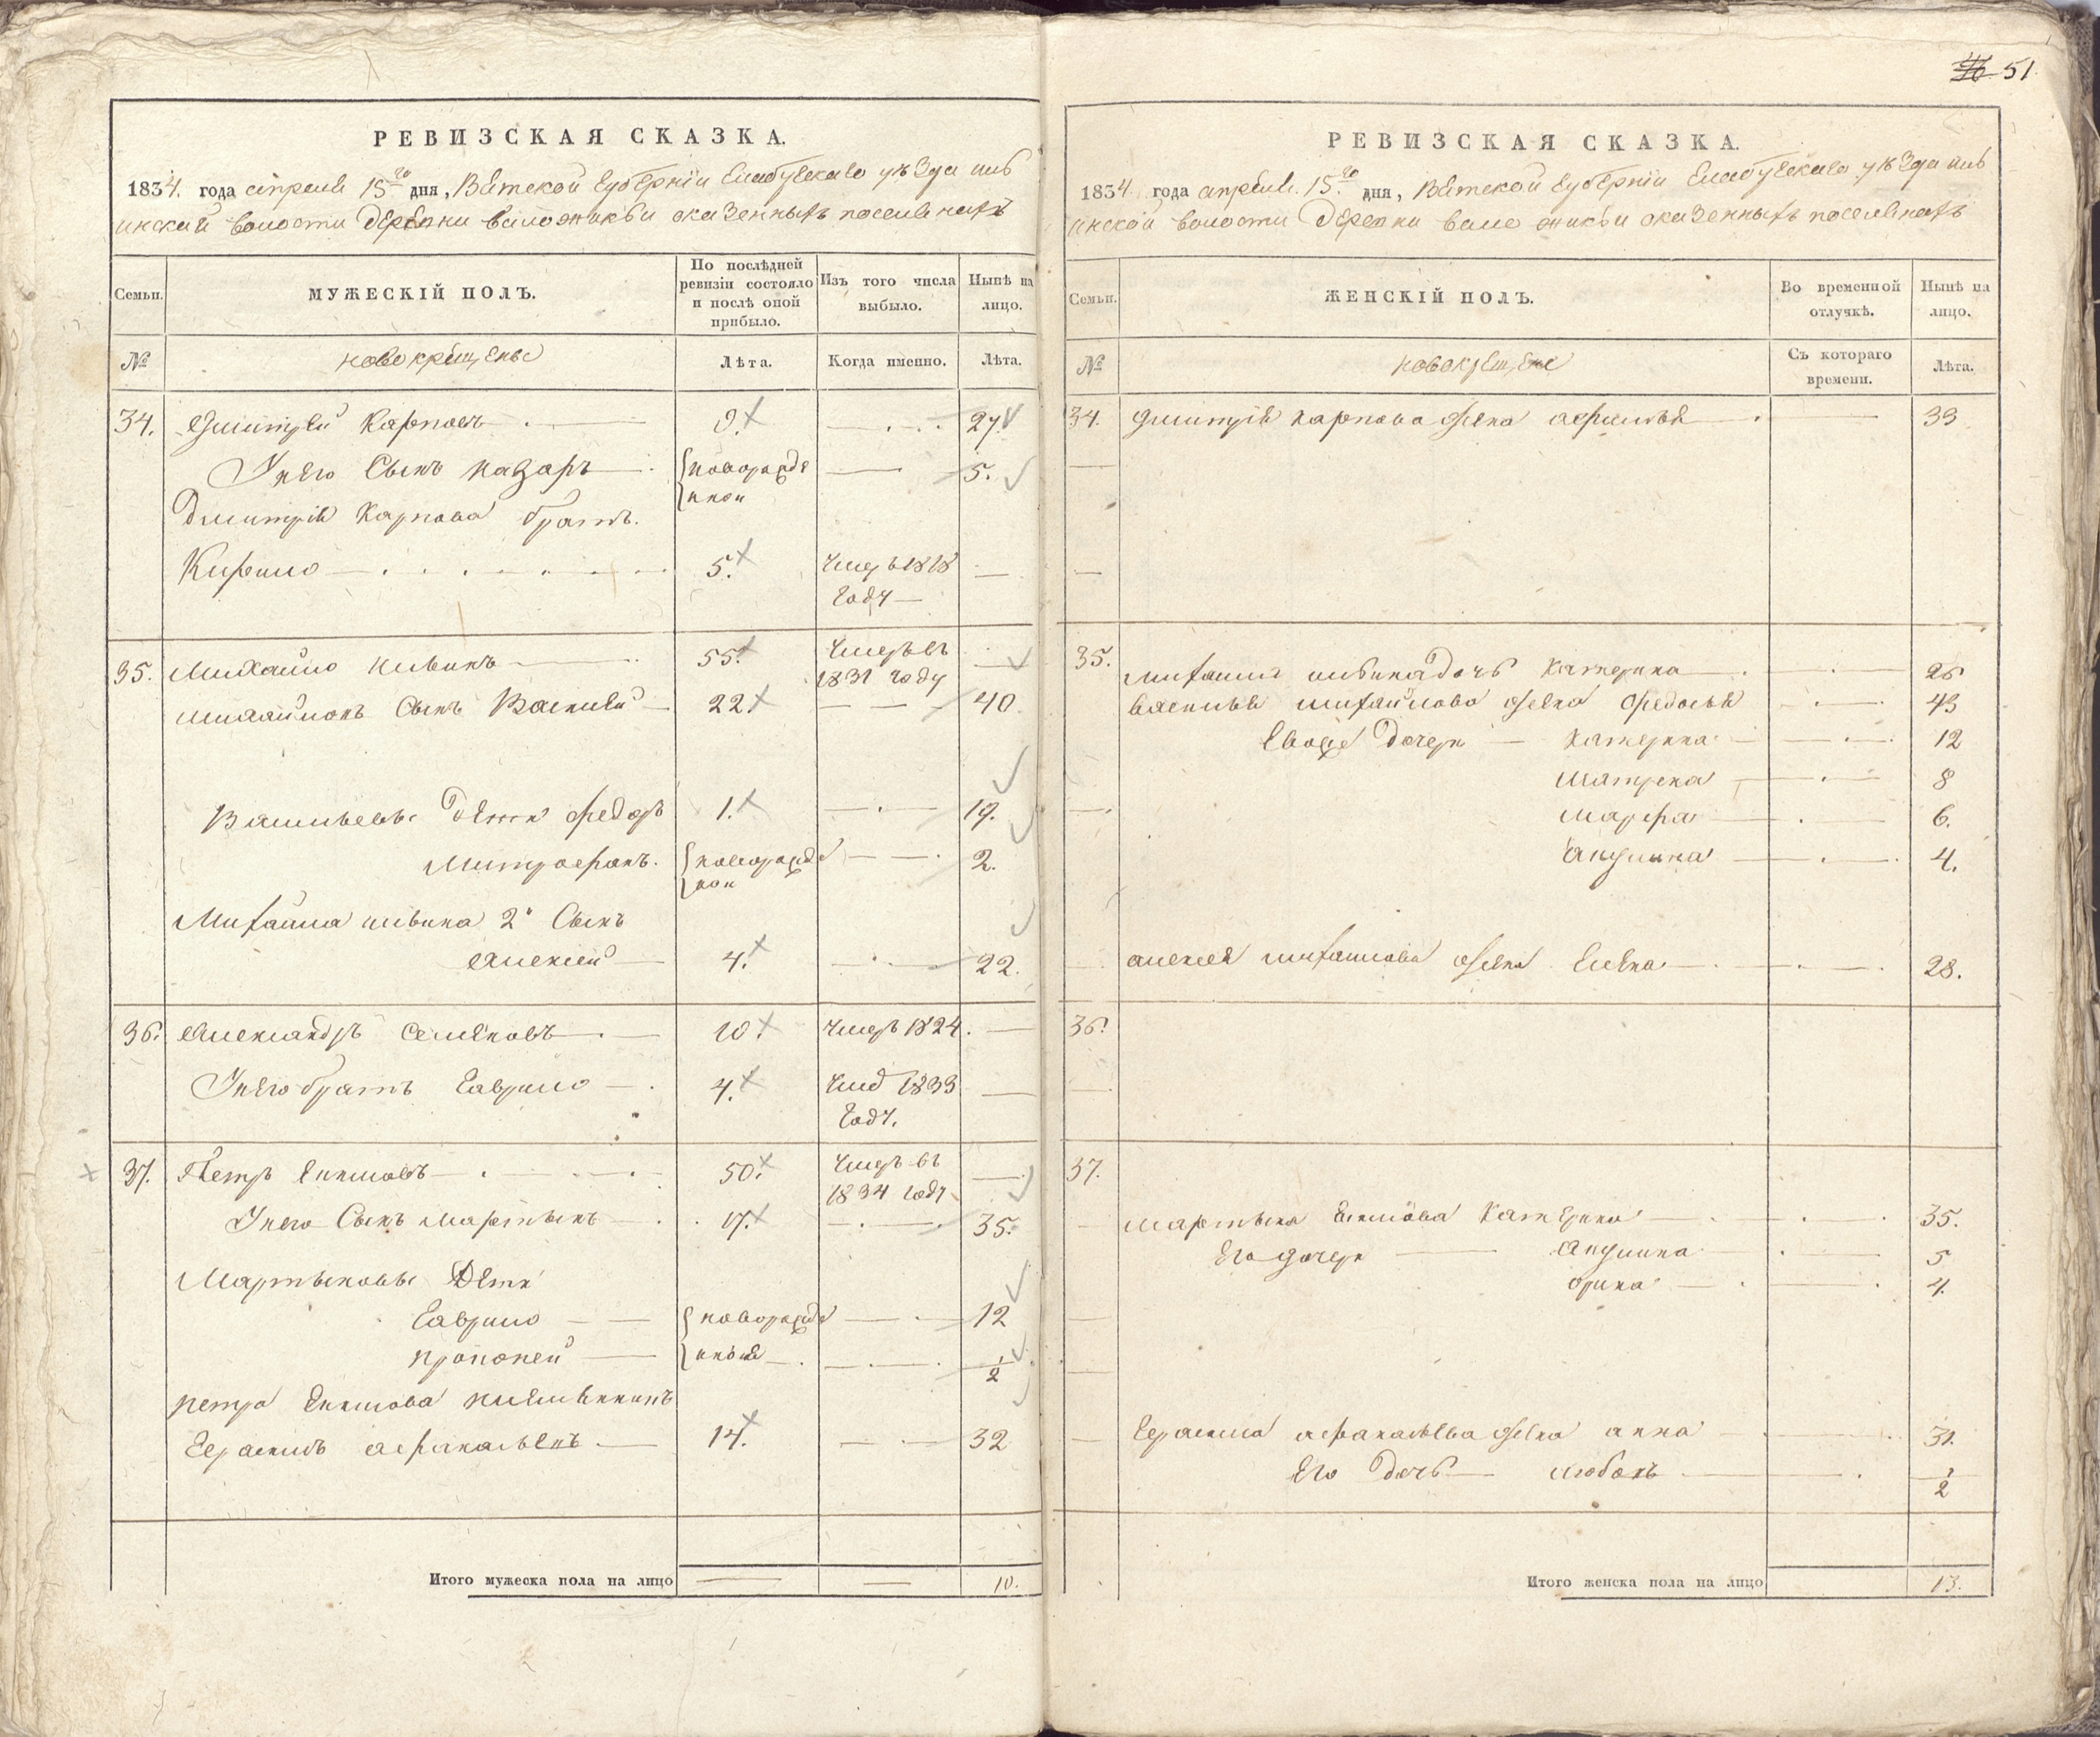 51
РЕВИЗСКАЯ СКАЗКА.
1834. года апреля 15го дня, Вятской Губернїи Елабужскаго уѣзда
инской волости деревни оказенныхъ поселянахъ
Семьи.
МУЖЕСКІЙ ПОЛЪ.
По послѣдней ревизіи состояло и послѣ оной прибыло.
Изъ того числа выбыло.
Нынѣ на лицо.
№
новокрещены
Лѣта.
Когда именно.
Лѣта.
34. Дмитрей Карповъ 9. 27
Унего Сынъ Назаръ новорожденной 5.
Дмитрія Карпова братъ.
Кирило 5. Умеръ 1818 Году
35. Михайло Ивинъ 55. Умеръ въ 1831 году
Михайловъ Сынъ Василей 22. 40.
Васильевы Дети Федоръ 1. 19.
Митрофанъ. новорожденной 2.
Михайла Ивина 2й Сынъ
Алексей 4. 22.
36. Александръ Семеновъ 10. Умеръ 1824.
Унего братъ Гаврило 4. Умер 1833 Году.
37. Петръ Екимовъ 50. Умеръ въ 1834 году
Унего Сынъ Мартынъ 17. 35.
Мартыновы Дети
Гаврило новорожденныя 12
Прокопей 1/2
Петра Екимова племянникъ
Герасимъ Афанасьевъ 14. 32
Итого мужеска пола на лицо 10.
РЕВИЗСКАЯ СКАЗКА.
1834 года апреля. 15.го дня, Вятской Губернїи Елабужскаго уѣзда
инской волости Деревни оказенныхъ поселянахъ
Семьи.
ЖЕНСКІЙ ПОЛЪ.
Во временной отлучкѣ.
Нынѣ на лицо.
№
новокрещене
Съ котораго времени.
Лѣта.
34. Дмитрія Карпова жена 33
35. Михаила Ивина дочь Катерина 26
Василья Михайлова жена Федосья 43
Евоже Дочери Катерина 12
Матрена 8
Марфа 6.
Акулина 4.
Алексея Михаилова жена Елена 28.
36.
37.
Мартына Екимова Катерина 35.
Его дочери Акулина 5
Орина 4.
Герасима Афанасьева жена Анна 31.
Его Дочь Любовь 1/2
Итого женска пола на лицо 13.